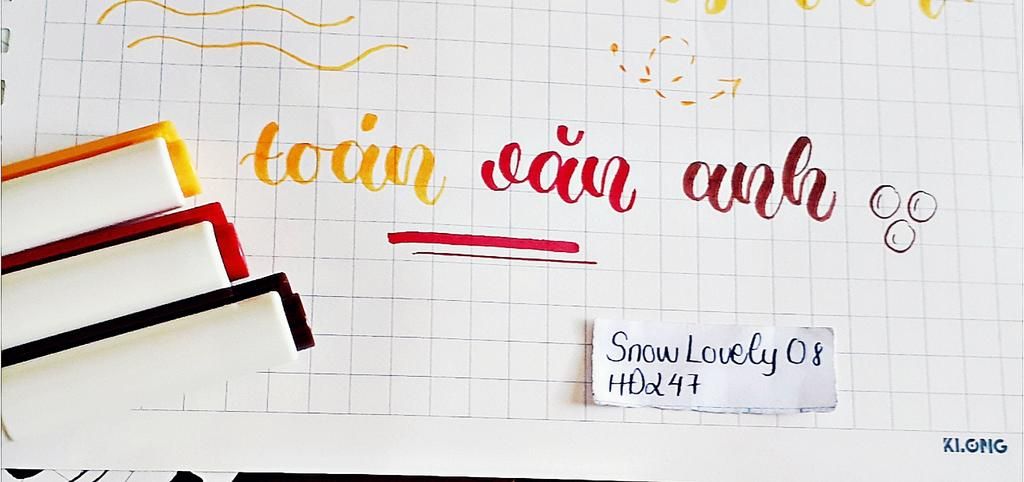 toán văn anh
Snow Lovely 08
HD247
KLONG